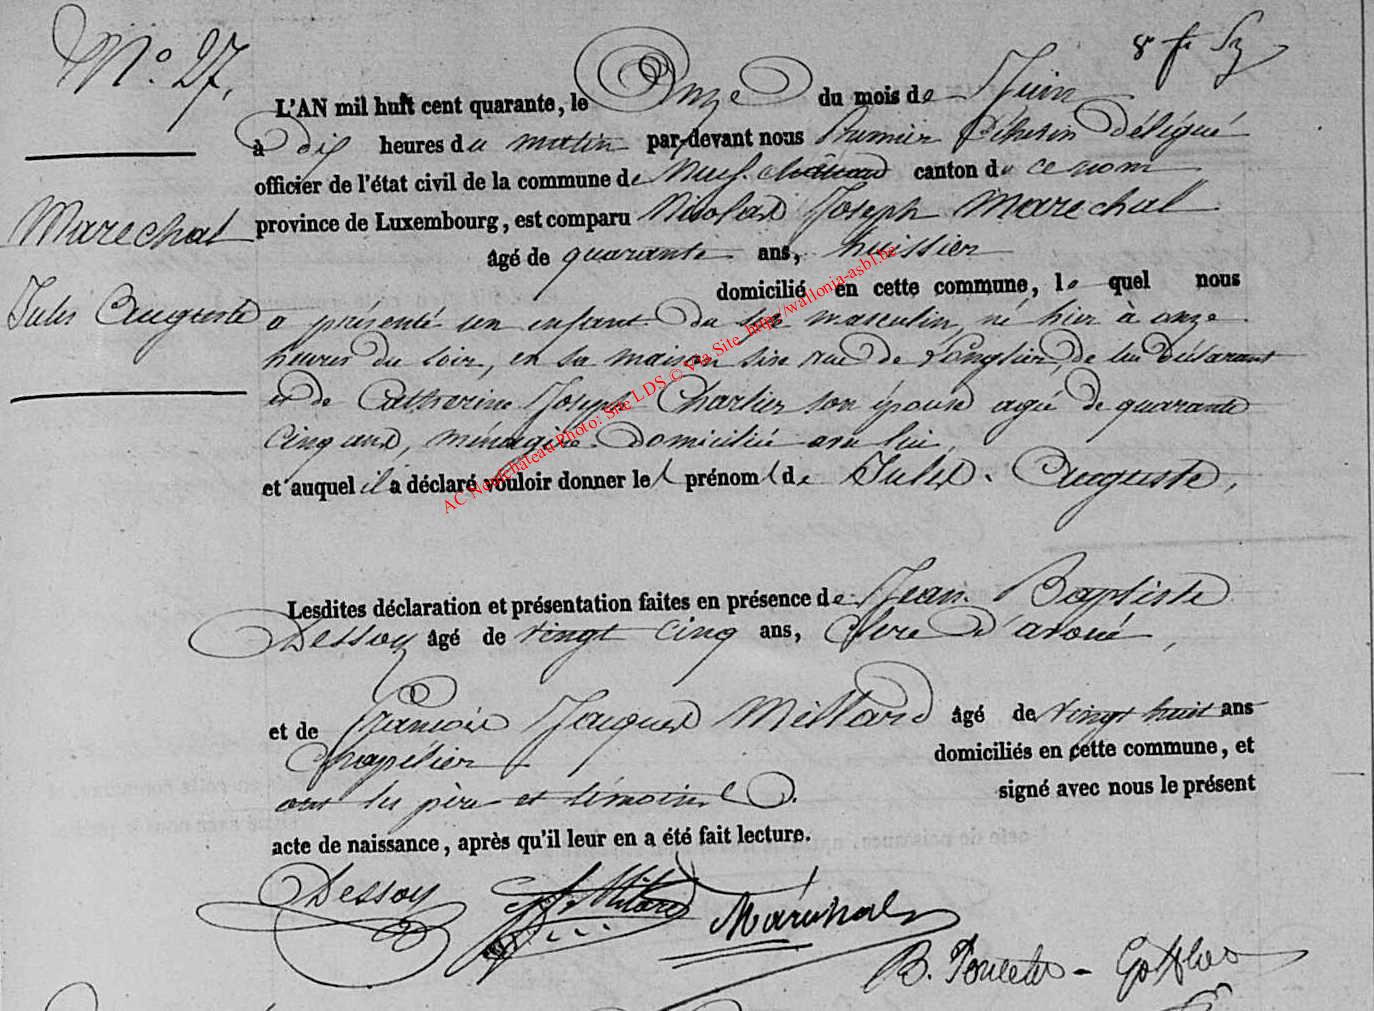 N° 27.
L'AN mil huit cent quarante, le Onze du mois de Juin
à dix heures du matin par-devant nous Premier Echevin délégué
officier de l'état civil de la commune de Neufchateau canton de ce nom
Marechal
province de Luxembourg, est comparu Nicolas Joseph Marechal
âgé de quarante ans, huissier
domicilié en cette commune, lequel nous
Jules Auguste
a présenté un enfant du sexe masculin, né hier à onze
heures du soir, en sa maison sise rue de Longlier, de lui déclarant
et de Catherine Joseph Charlier son épouse agée de quarante
cinq ans, ménagère domiciliée avec lui,
et auquel il a déclaré vouloir donner les prénoms de Jules Auguste,
Lesdites déclaration et présentation faites en présence de Jean Baptiste
Dessoy âgé de vingt cinq ans, Clerc d'avoué,
et de François Jacques Millard âgé de vingt huit ans
Chapelier domiciliés en cette commune, et
ont les père et témoins signé avec nous le présent
acte de naissance, après qu'il leur en a été fait lecture.
Dessoy Maréchal
AC Neufchateau Photo: Site LDS. © Via Site http://wallonia-asbl.be